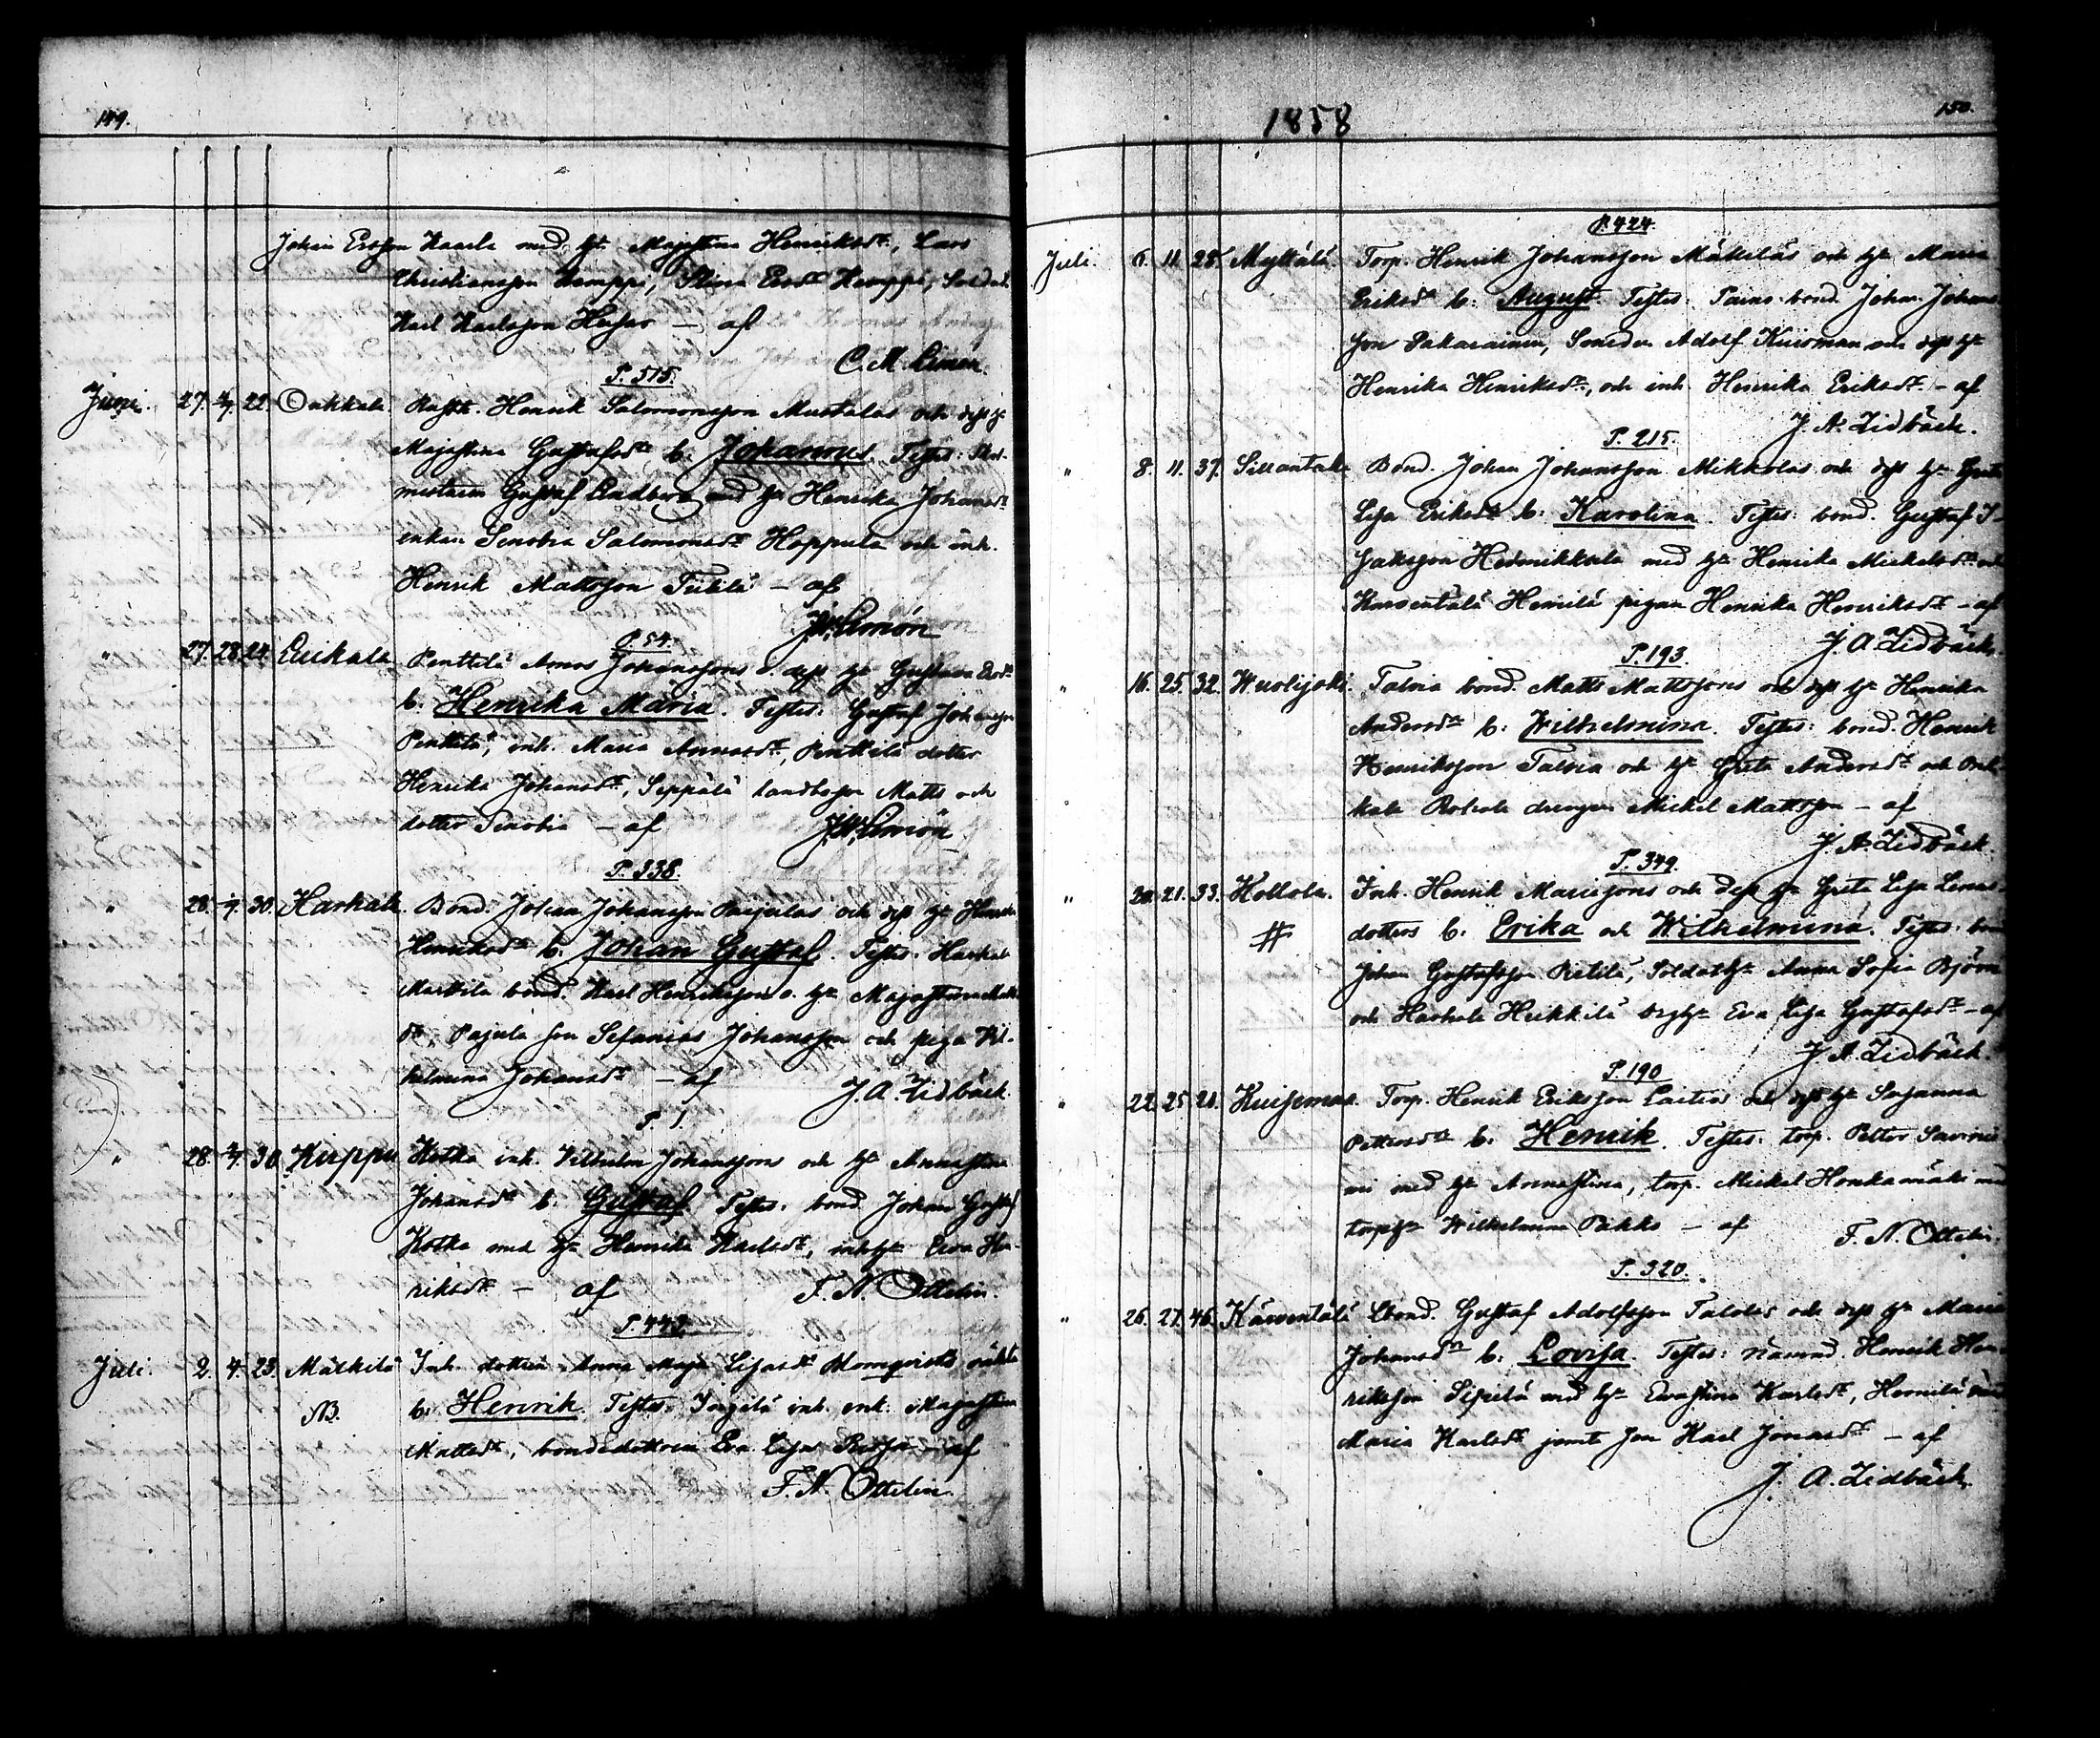 149.
Johan Ersson Kaarla med h:u Majastina Henriksd:r, Lars
Christiansson Hemppi, Stina Ersd:r Hemppi, Soldat
Karl Karlsson Husar — af
C. M. Limon.
P. 515.
Juni. 27. 4/7. 22. Okkala Rusth. Henrik Salomonsson Mustalas och dess h:u
Majastina Gustafsd:r b. Johannes. Testes: Skol-
mästaren Gustaf Lindberg med h:u Henrika Johansd:r
enkan Senobia Salomonsd:r Hoppula och inh.
Henrik Mattsson Tiitilä — af
J. W. Limón
P. 54.
" 27. 28. 24. Erikala Penttilä Amos Johanssons o. dess h:u Gustava Ersd:r
b. Henrika Maria. Testes: Gustaf Johansson
Penttilä, inh. Maria Annasd:r, Penttilä dotter
Henrika Johansd:r, Seppälä landb. son Matts och
dotter Senobia — af J. W. Limón
P. 338.
" 28. 4/7. 30. Harkala. Bond. Johan Johansson Pajulas och dess h:u Henrika
Henriksd:r b. Johan Gustaf. Testes: Harkala
Markila bond. Karl Henriksson o. h:u Majastina Matts
d:r, Pajula son Sefanias Johansson och piga Vil-
helmina Johansd:r — af J. A. Zidbäck.
P. 1
" 28. 4/7. 30. Kirppu Kotka inh. Vilhelm Johanssons och h:u Annastina
Johansd:r b. Gustaf. Testes: bond. Johan Gustaf
Kotka med h:u Henrika Karlsd:r, inh. h:u Eva Hen-
riksd:r — af F. N. Ottelin.
P. 442.
Juli. 2. 4. 23. Mälkilä Inh. dottren Anna Maja Lisasd:r Blomqvists oäkta
NB. b. Henrik. Testes: Inh. enk. Majastina
Mattsd:r, bondedottren Eva Lisa — af
F. N. Ottelin.
1858
150.
P. 424.
Juli. 6. 11. 28. Myllälä Torp. Henrik Johansson Mäkiläs och h:u Maria
Eriksd:r b. August. Testes: bond. Johan Johans-
son Pakarainen, Adolf Kuisman och dess h:u
Henrika Henriksd:r, och inh. Henrika Eriksd:r — af
J. A. Zidbäck.
P. 215.
" 8. 11. 37. Sillantaka Bond. Johan Johansson Mikkolas och dess h:u Greta
Lisa Eriksd:r b. Karolina. Testes: bond. Gustaf I-
saksson Heinrikkala med h:u Henrika Mickelsd:r och
Kärventälä Hemilä pigan Henrika Henriksd:r — af
J. A. Zidbäck.
P. 193.
" 16. 25. 32. Wuolijoki. Talvia bond. Matts Mattssons och dess h:u Henrika
Andersd:r b. Wilhelmina. Testes: bond. Henrik
Henriksson Talvia och h:u Greta Andersd:r och
drengen Mickel Mattsson — af
J. A. Zidbäck.
P. 349.
" 20. 21. 33. Kollola. Inh. Henrik Mariessons och dess h:u Greta Lisa Lenas-
# dotters b. Erika och Wilhelmina. Testes: bond
Johan Gustafsson Pietilä, Soldath:u Anna Sofia Björn
och Harkala Heikkilä h:u Eva Lisa Gustafsd:r — af
J. A. Zidbäck.
P. 190
" 22. 25. 21. Kuisemaa. Torp. Henrik Eriksson Laitios och dess h:u Susanna
Pettersd:r b. Henrik. Testes: torp. Petter Savinie-
mi med h:u Annastina, torp. Mickel Honkamäki med
torp. h:u Wilhelmina Pakko — af F. N. Ottelin.
P. 320.
" 26. 27. 46. Kärventälä Bond. Gustaf Adolfsson Talolas och dess h:u Maria
Johansd:r b. Lovisa. Testes: nämnd. Henrik Hen-
riksson Sipilä med h:u Evastina Karlsd:r, Hemilä
Maria Karlsd:r jemte son Karl Jonasd:r — af
J. A. Zidbäck.